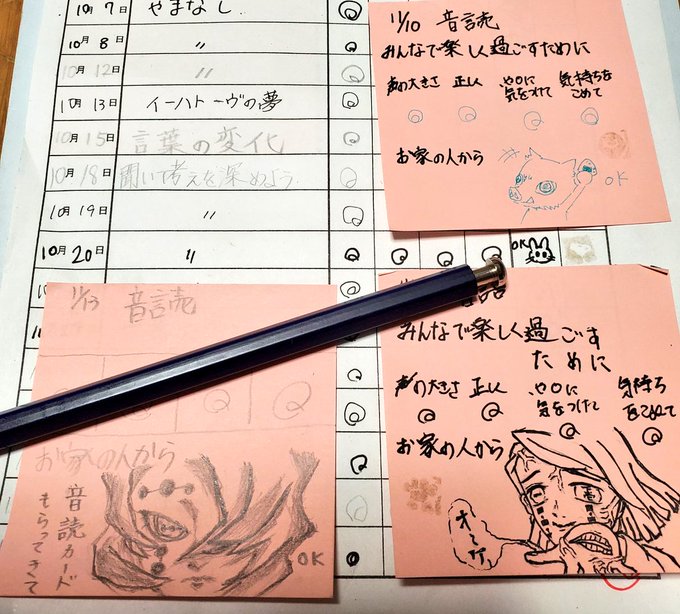 10月 7日 やまなし
10月 8日 〃
10月 12日 〃
10月 13日 イーハトーヴの夢
10月 15日 言葉の変化
10月 18日 聞いて考えを深めよう
10月 19日 〃
10月 20日 〃 OK
10月
11/10 音読
みんなで楽しく過ごすために
声の大きさ 正しく 「、」「。」に気をつけて 気持ちをこめて
お家の人から
OK
11/13 音読
お家の人から
音読カード
もらってきて
OK
みんなで楽しく過ごす
ために
声の大きさ 正しく 気をつけて 気持ちをこめて
お家の人から
オーケー